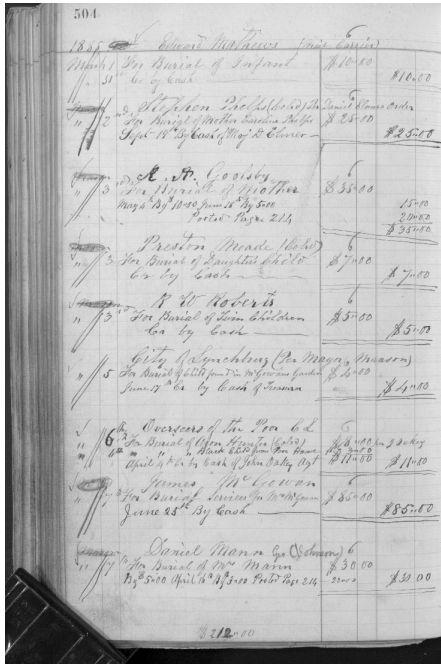 504
1865 Edward Mathews
March 31st For Burial of Infant $10.00
Cr by Cash $10.00
Stephen Phelps (Cold) Daniel Order
" 2nd For Burial of Mother Caroline Phelps $25.00
Sept 18th By Cash of Maj D. $25.00
A. A. Goolsby 6
" 3rd For Burial of Mother $35.00
May 4th By $10.00 June 15th By 5.00 15.00
Posted Page 214 20.00
$35.00
Preston Meade (Cold) 6
" 3 For Burial of Daughters Child $7.00
Cr by Cash $7.00
R W Roberts 6
" 3rd For Burial of Twin Children $5.00
Cr by Cash $5.00
City of Lynchburg (Per Mayor
" 5 For Burial of Child found in McGowans Garden $4.00
June 17th Cr by Cash of Treasurer $4.00
Overseers of the Poor 6
" 6th For Burial of Hunter (Cold)
" 6th " " " Black Child from Poor House
April 4th Cr by Cash of John Oakey Agt $11.00 $11.00
James McGowan 6
" 7th For Burial Services for Mr McGowan $85.00
June 25th By Cash $85.00
Daniel Mann 6
" 7th For Burial of Mrs Mann $30.00
By 5.00 April 14th By 3.00 Posted Page 214 $30.00
$212.00